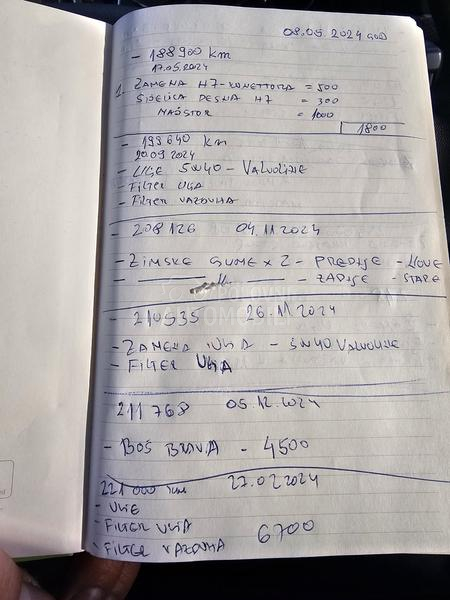 08.05.2024 god
- 188900 km
17.05.2024
1. ZAMENA H7-KONETTORA = 500
SIJELICA DESNA H7 = 300
NAOSTOR = 1000
1800
- 199640 km
20.09.2024
- ULJE 5W40 - VALVOLINE
- FILTER ULJA
- FILTER VAZDUHA
- 208126 04.11.2024
- ZIMSKE GUME x 2 - PREDNJE - NOVE
- ZADNJE - STARE
- 210535 26.11.2024
- ZAMENA ULJA - 5W40 VALVOLINE
- FILTER ULJA
211768 05.12.2024
- BOŠ BRAVA - 4500
221 000 km 27.02.2024
- ULJE
- FILTER ULJA 6700
- FILTER VAZDUHA